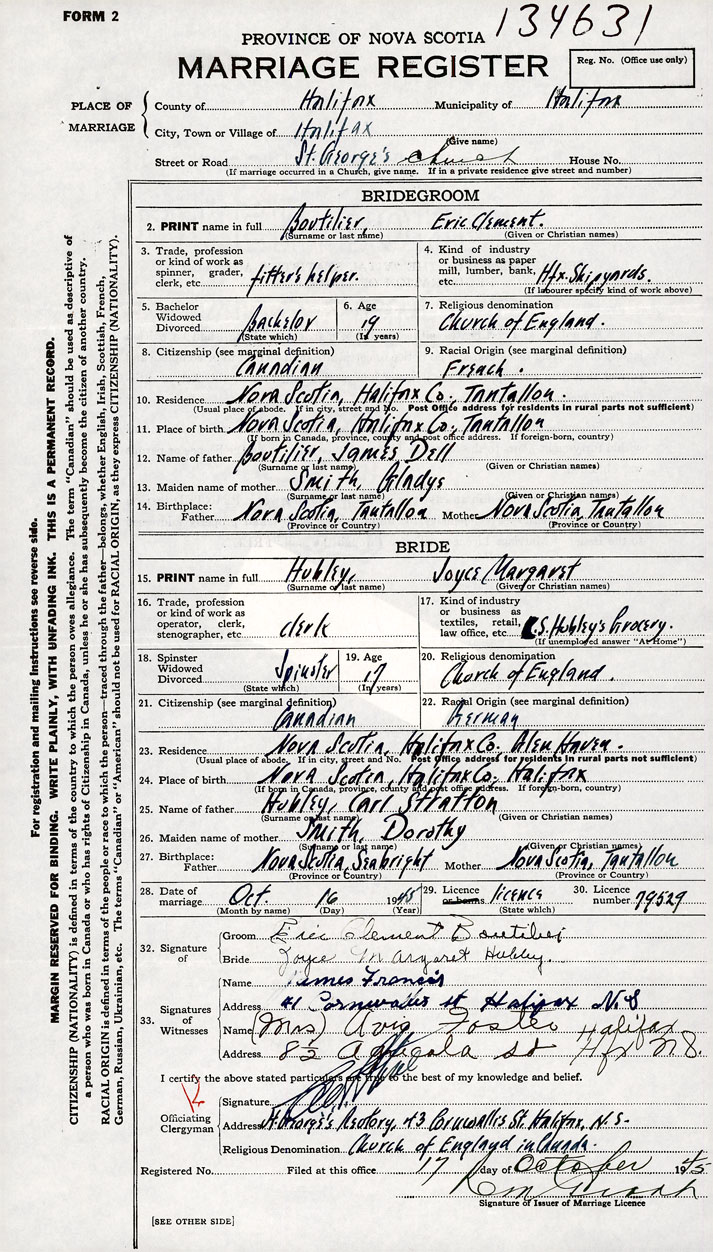 FORM 2
134631
PROVINCE OF NOVA SCOTIA
MARRIAGE REGISTER
Reg. No. (Office use only)
PLACE OF MARRIAGE
County of Halifax Municipality of Halifax
City, Town or Village of Halifax
(Give name)
Street or Road St. George's church House No.
(If marriage occurred in a Church, give name. If in a private residence give street and number)
BRIDEGROOM
2. PRINT name in full Boutilier, Eric Clement.
(Surname or last name) (Given or Christian names)
3. Trade, profession or kind of work as spinner, grader, clerk, etc. fitter's helper.
4. Kind of industry or business as paper mill, lumber, bank, etc. Hfx. Shipyards.
(If labourer specify kind of work above)
5. Bachelor Widowed Divorced Bachelor
(State which)
6. Age 19
(In years)
7. Religious denomination
Church of England.
8. Citizenship (see marginal definition)
Canadian
9. Racial Origin (see marginal definition)
French.
10. Residence Nova Scotia, Halifax Co., Tantallon.
(Usual place of abode. If in city, street and No. Post Office address for residents in rural parts not sufficient)
11. Place of birth Nova Scotia, Halifax Co., Tantallon
(If born in Canada, province, county and post office address. If foreign-born, country)
12. Name of father Boutilier, James Dell
(Surname or last name) (Given or Christian names)
13. Maiden name of mother Smith, Gladys
(Surname or last name) (Given or Christian names)
14. Birthplace: Father Nova Scotia, Tantallon Mother Nova Scotia, Tantallon
(Province or Country) (Province or Country)
BRIDE
15. PRINT name in full Hubley, Joyce Margaret
(Surname or last name) (Given or Christian names)
16. Trade, profession or kind of work as operator, clerk, stenographer, etc. clerk
17. Kind of industry or business as textiles, retail, law office, etc. C.S. Hubley's Grocery.
(If unemployed answer "At Home")
18. Spinster Widowed Divorced Spinster
(State which)
19. Age 17
(In years)
20. Religious denomination
Church of England.
21. Citizenship (see marginal definition)
Canadian
22. Racial Origin (see marginal definition)
German
23. Residence Nova Scotia, Halifax Co. Glen Haven.
(Usual place of abode. If in city, street and No. Post Office address for residents in rural parts not sufficient)
24. Place of birth Nova Scotia, Halifax Co., Halifax
(If born in Canada, province, county and post office address. If foreign-born, country)
25. Name of father Hubley, Carl Stratton
(Surname or last name) (Given or Christian names)
26. Maiden name of mother Smith, Dorothy
(Surname or last name) (Given or Christian names)
27. Birthplace: Father Nova Scotia, Seabright Mother Nova Scotia, Tantallon
(Province or Country) (Province or Country)
28. Date of marriage Oct. 16 1945
(Month by name) (Day) (Year)
29. Licence or banns licence
(State which)
30. Licence number 79529
32. Signature of
Groom Eric Clement Boutilier
Bride Joyce Margaret Hubley.
33. Signatures of Witnesses
Name James Francis
Address #1 Cornwallis st Halifax N.S
Name (Mrs) Avis Foster Halifax
Address 8½ Agricola St Hfx N.S.
I certify the above stated particulars are true to the best of my knowledge and belief.
Officiating Clergyman
Signature
Address St. George's Rectory, 43 Cornwallis St. Halifax, N.S.
Religious Denomination Church of England in Canada.
Registered No. Filed at this office 17 day of October 1945
Signature of Issuer of Marriage Licence
[SEE OTHER SIDE]
For registration and mailing instructions see reverse side.
MARGIN RESERVED FOR BINDING. WRITE PLAINLY, WITH UNFADING INK. THIS IS A PERMANENT RECORD.
CITIZENSHIP (NATIONALITY) is defined in terms of the country to which the person owes allegiance. The term "Canadian" should be used as descriptive of
a person who was born in Canada or who has rights of Citizenship in Canada, unless he or she has subsequently become the citizen of another country.
RACIAL ORIGIN is defined in terms of the people or race to which the person—traced through the father—belongs, whether English, Irish, Scottish, French,
German, Russian, Ukrainian, etc. The terms "Canadian" or "American" should not be used for RACIAL ORIGIN, as they express CITIZENSHIP (NATIONALITY).